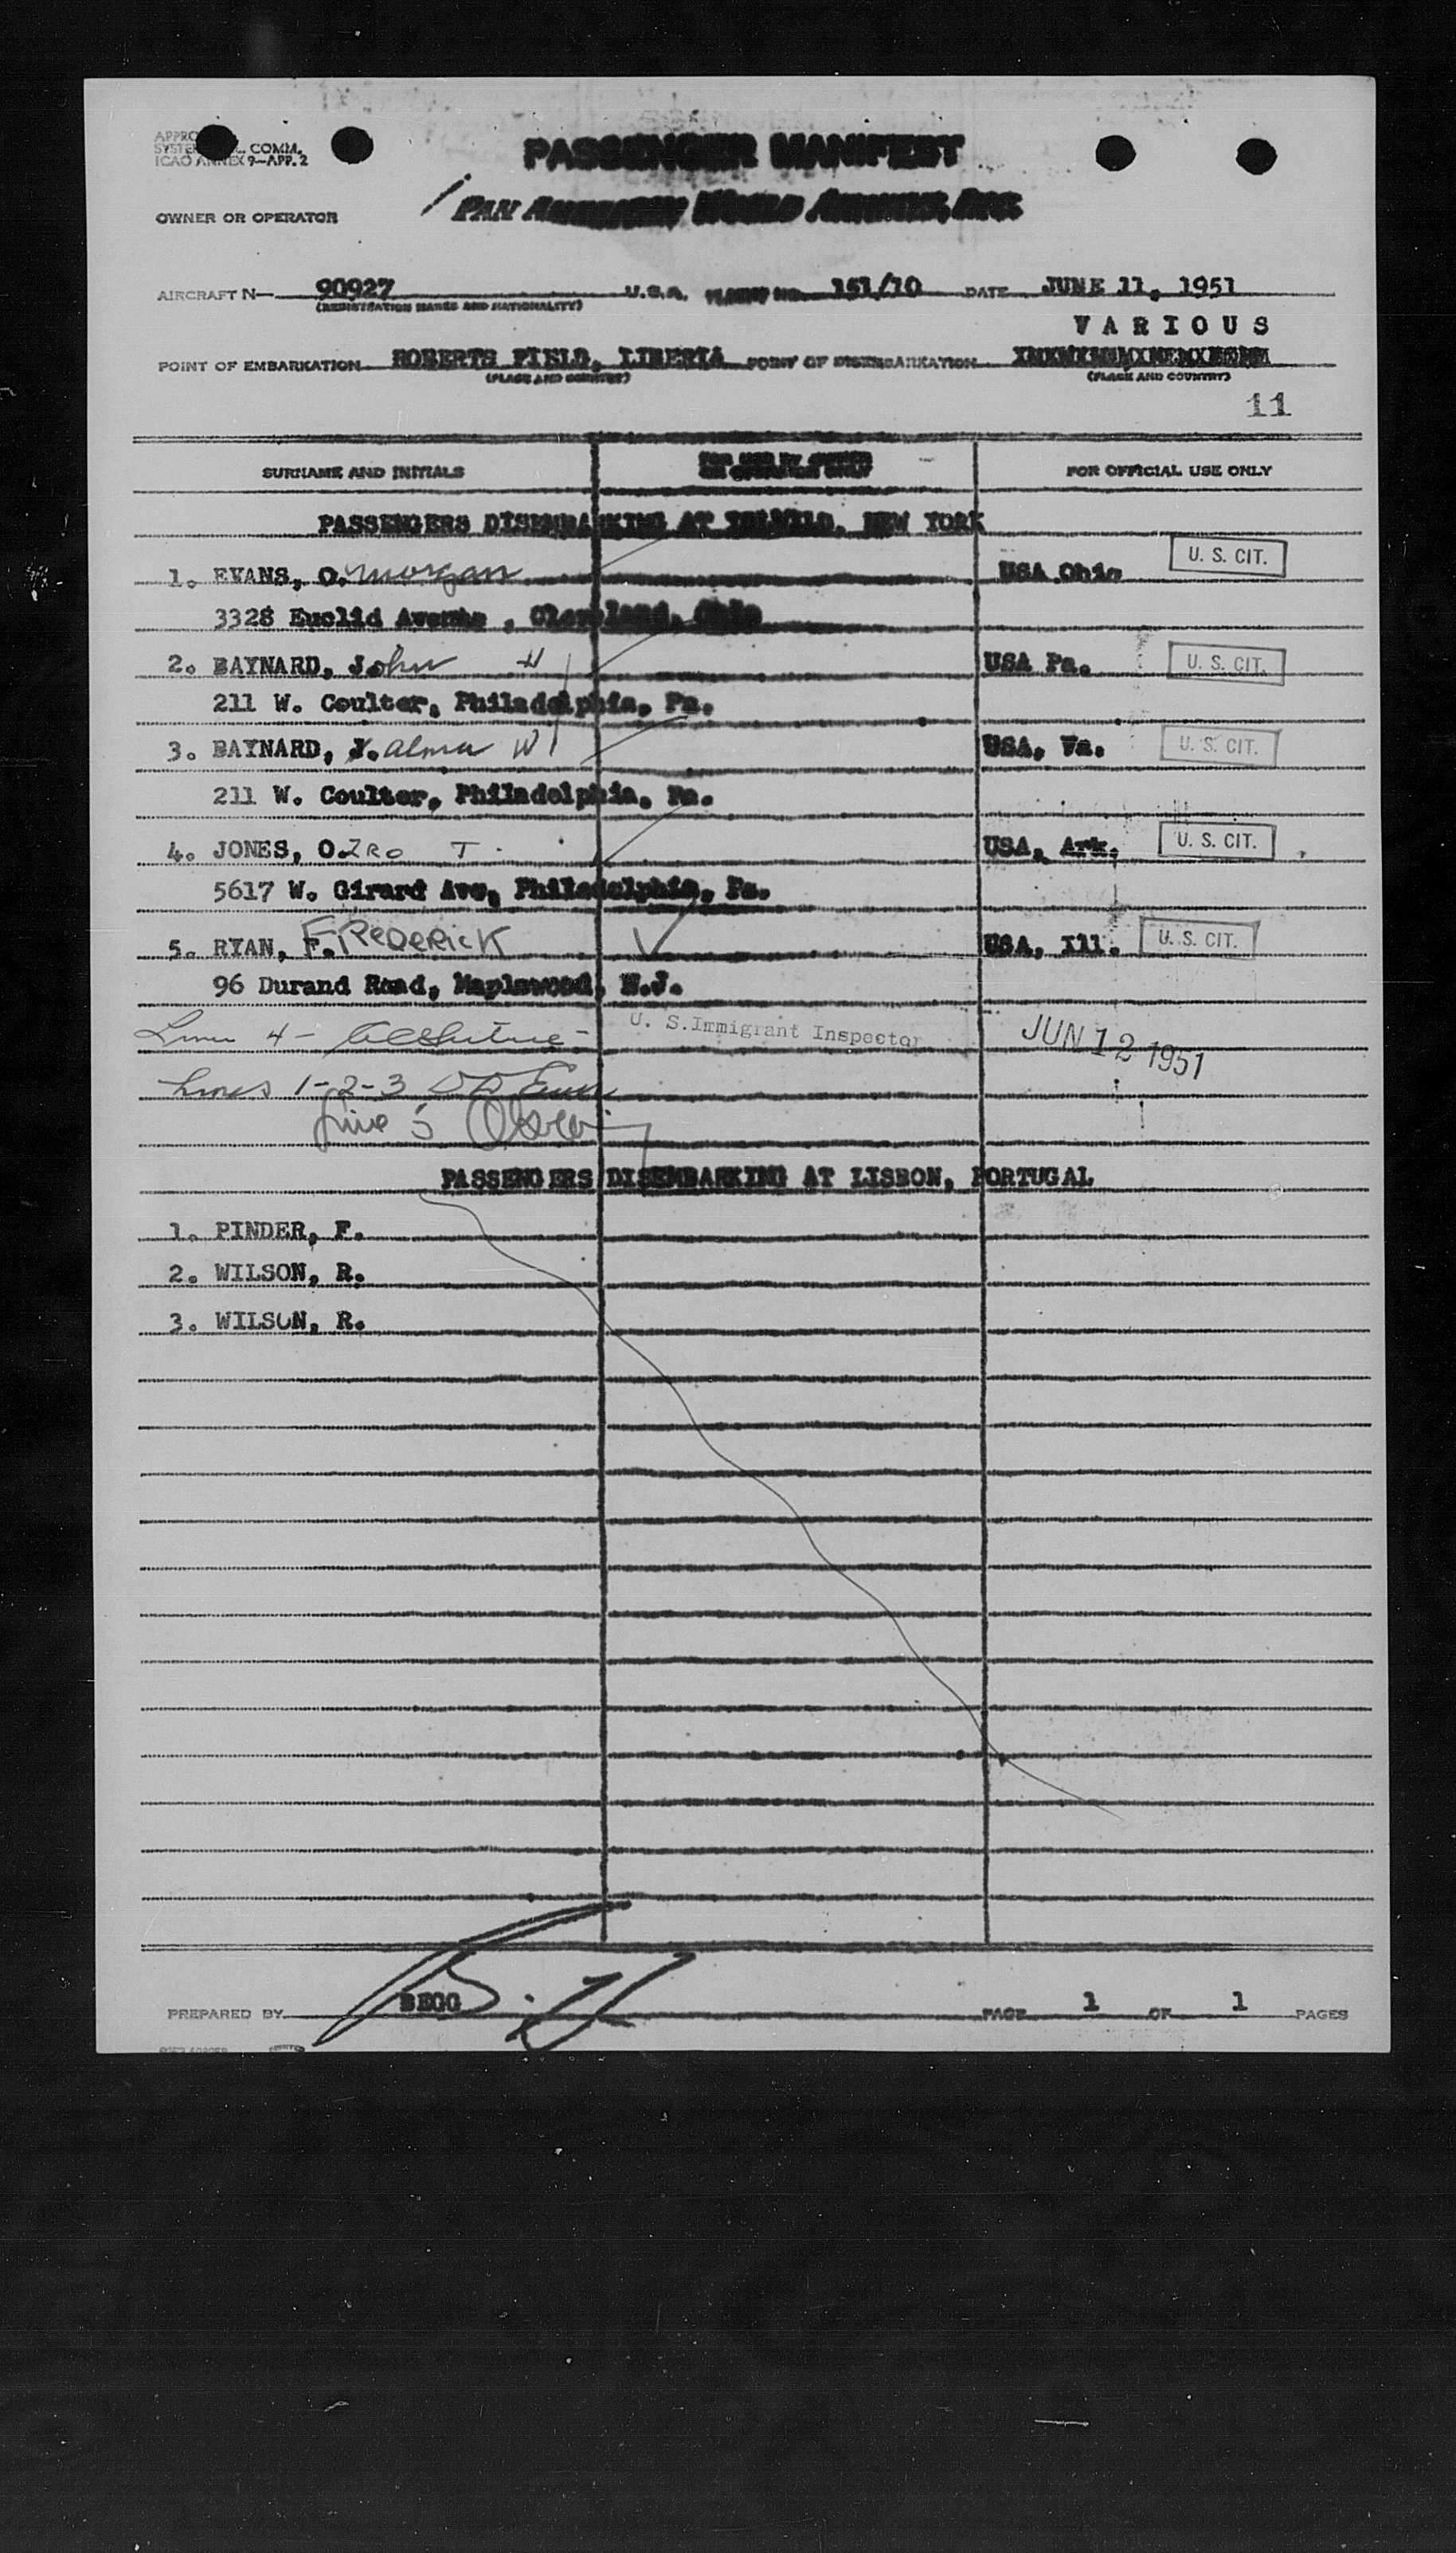 APPRO
SYSTE L. COMM.
ICAO ANNEX 9-APP. 2
PASSENGER MANIFEST
OWNER OR OPERATOR PAN AMERICAN WORLD AIRWAYS, INC.
AIRCRAFT N- 90927 U.S.A. FLIGHT NO. 151/10 DATE JUNE 11, 1951
(REGISTRATION MARKS AND NATIONALITY)
VARIOUS
POINT OF EMBARKATION ROBERTS FIELD, LIBERIA POINT OF DISEMBARKATION
(PLACE AND COUNTRY) (PLACE AND COUNTRY)
11
SURNAME AND INITIALS FOR USE BY OWNER OR OPERATOR ONLY FOR OFFICIAL USE ONLY
PASSENGERS DISEMBARKING AT IDLEWILD, NEW YORK
1. EVANS, O. Morgan USA Ohio U. S. CIT.
3328 Euclid Avenue , Cleveland, Ohio
2. BAYNARD, John H USA Pa. U. S. CIT.
211 W. Coulter, Philadelphia, Pa.
3. BAYNARD, Alma W USA, Va. U. S. CIT.
211 W. Coulter, Philadelphia, Pa.
4. JONES, OZRO T. USA, Ark. U. S. CIT.
5617 W. Girard Ave, Philadelphia, Pa.
5. RYAN, F. FREDERICK USA, Ill. U. S. CIT.
96 Durand Road, Maplewood, N.J.
4 - U. S. Immigrant Inspector JUN 12 1951
Lines 1-2-3
Line 5 Olsen
PASSENGERS DISEMBARKING AT LISBON, PORTUGAL
1. PINDER, F.
2. WILSON, R.
3. WILSON, R.
PREPARED BY BEGG PAGE 1 OF 1 PAGES